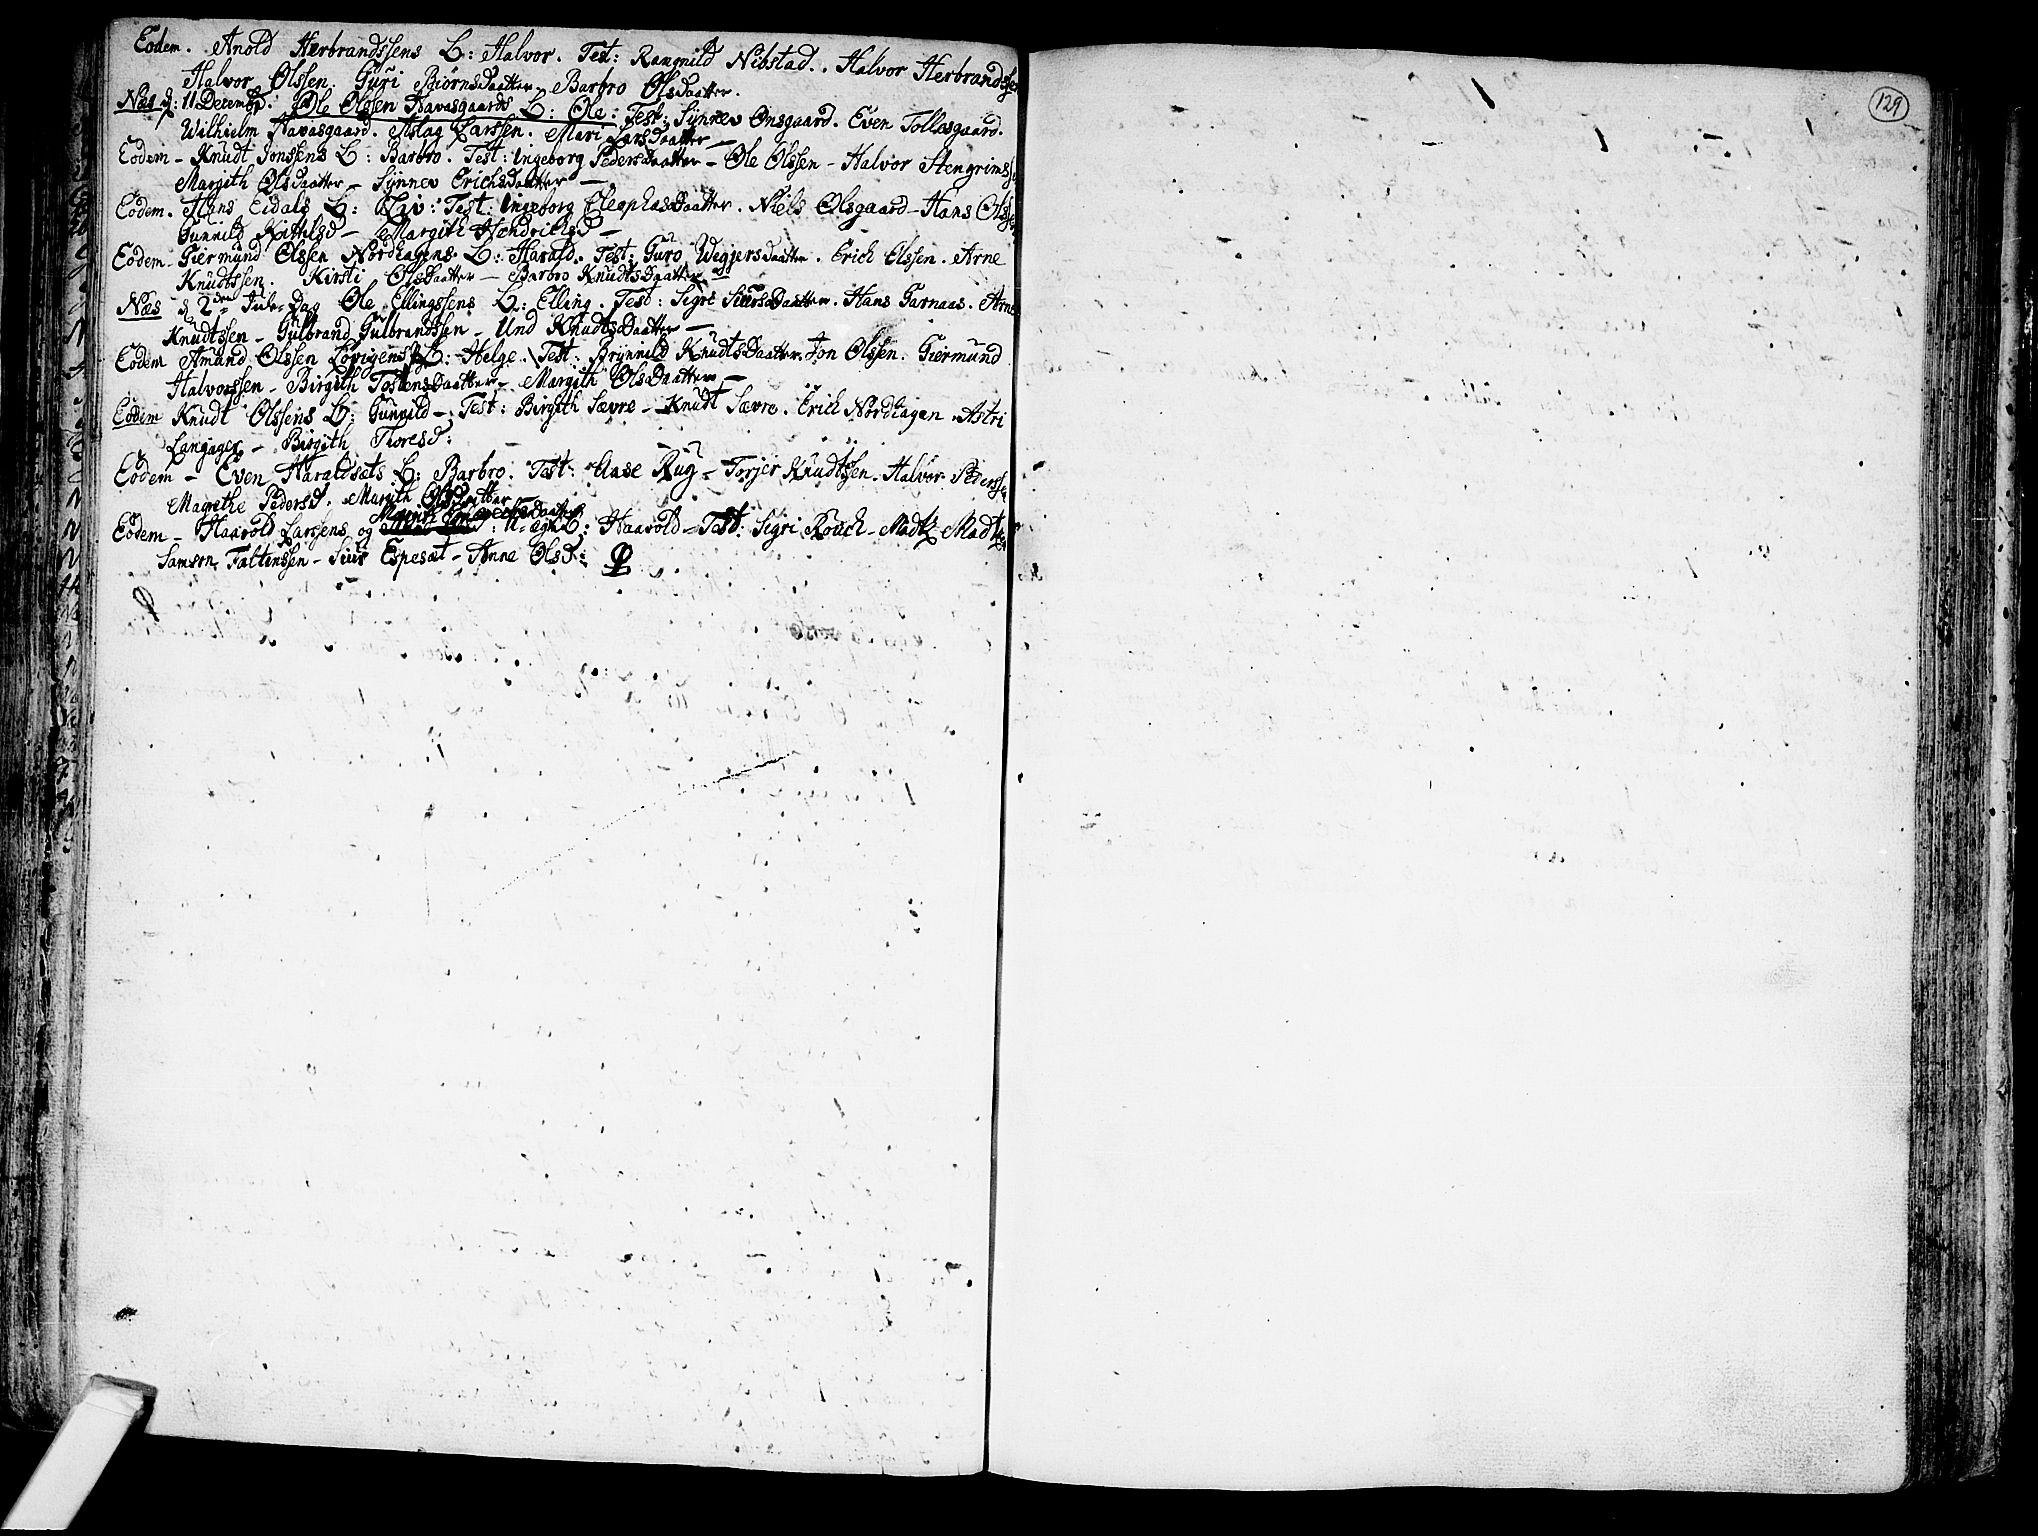 Eodem. Arnold Herbrandssens B: Halvor. Test: Rangnild Nibstad. Halvor Herbrandssen
Halvor Olssen. Guri BiörnsDaatter. Barbro OlsDaatter.
Næs d: 11 Decembr. Ole Olssen Navasgaards B: Ole. Test: Synnev Onsgaard. Even Tollesgaard.
Wilhielm Navasgaard. Aslag Larssen. Mari LarsDaatter
Eodem - Knudt Jonssens B: Barbro. Test: Ingeborg PedersDaatter - Ole Olssen - Halvor Stengrims
Margith OlsDaatter - Synnev ErichsDaatter -
Eodem. Hans Eidals B: Liv: Test. Ingeborg EleaphasDaatter. Niels Olsgaard - Hans Olssen
Gunnild Kittilsd - Margith Hendrichsd -
Eodem. Giermund Olssen Nordhagens B: Harald. Test: Guro WegjersDaatter. Erich Olssen. Arne
Knudtssen. Kirsti OlsDaatter - Barbro KnudtsDaatter
Næs d 2den Jule Dag Ole Ellingssens B: Elling. Test: Sigre SiursDaatter. Hans Garnaas. Arne
Knudtssen - Gulbrand Gulbrandssen - Und KnudtsDaatter -
Eodem Amund Olssen Lövigens B: Helge. Test: Brynnild KnudtsDaatter. Jon Olssen. Giermund
Halvorssen - Birgith TostensDaatter - Margith OlsDaatter -
Eodem Knudt Olssens B: Gunnild - Test: Birgith Sævre - Knudt Sævre. Erich Nordhagen. Astri
Langager - Birgith Thoresd:
Eodem - Even Haraldsæts B: Barbro. Test: Aase Rug - Torjer Knudtssen. Halvor Pederssen
Magrethe Pedersd. Margith OlsDaatter
Eodem - Haavold Larssens og : U-ægte B: Haavold - Test. Sigri Rouch - Madtz Madtzen
Samson Tattenssen - Siur Espesæt - Anne Olsd:
129